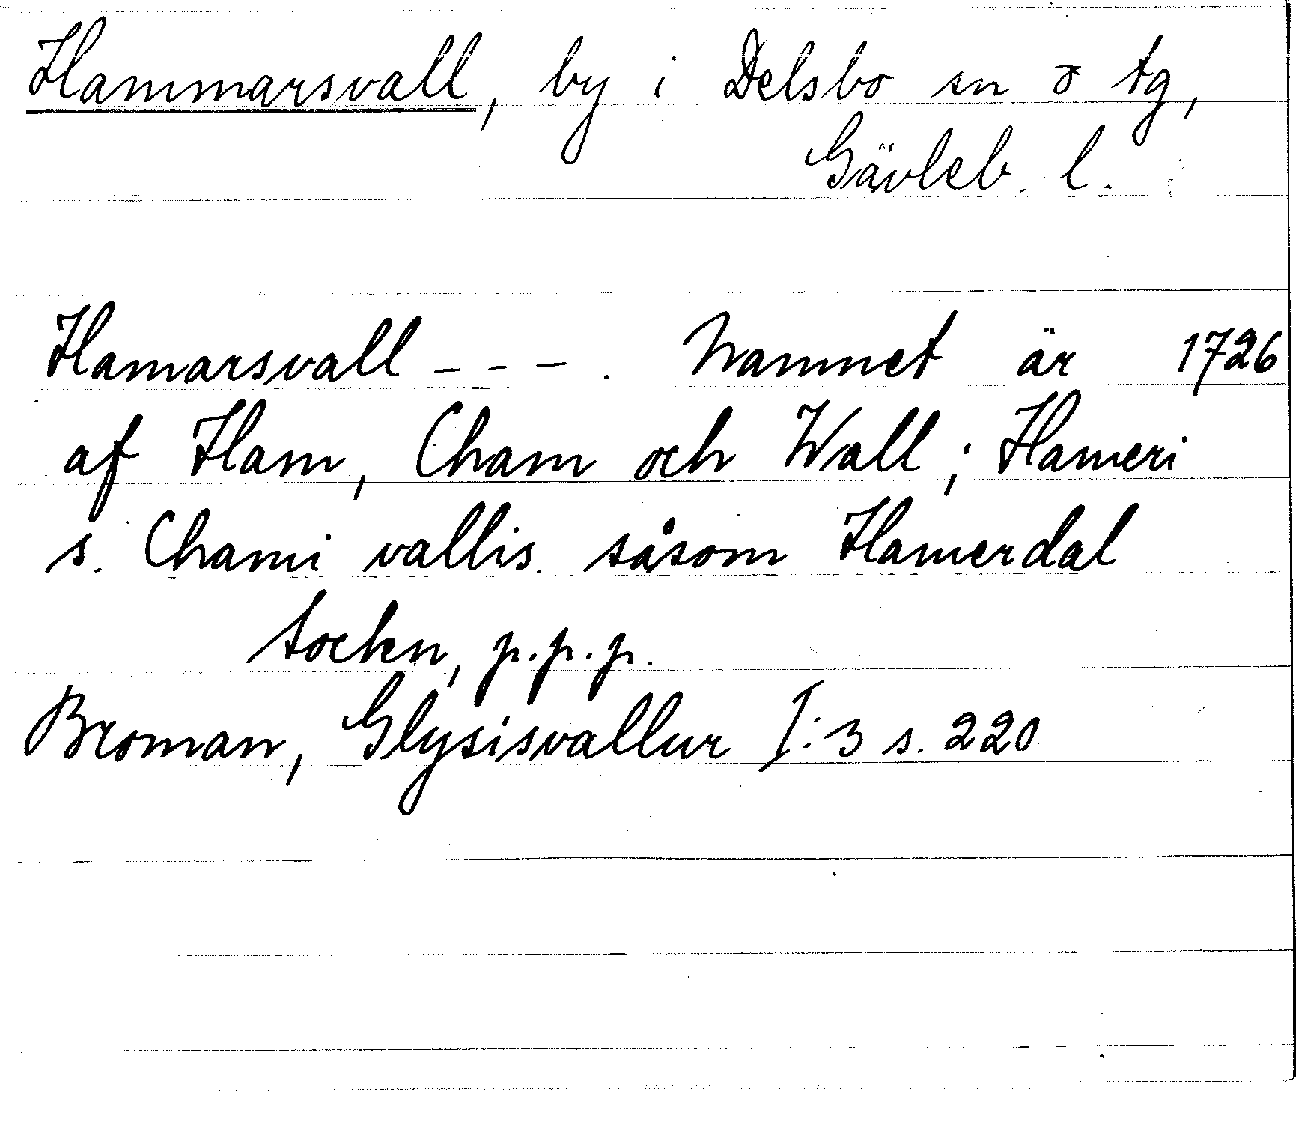 Hammarsvall, by i Delsbo sn o tg,
Gävleb. l.
Hamarsvall - - - . Namnet är 1726
af Ham, Cham och Wall; Hameri
s. Chami vallis. såsom Hamerdal
Sockn, p.p.p.
Broman, Glysisvallur I:3 s. 220